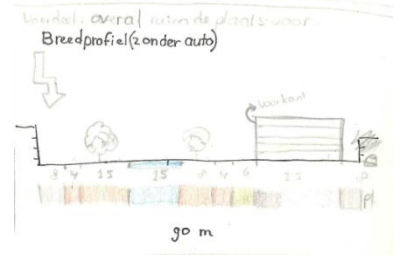 Voordeel: overal ruimde plaats voor.
Breedprofiel (zonder auto)
voorkant
8 4 15 15 8 4 6 25
pl.
90 m